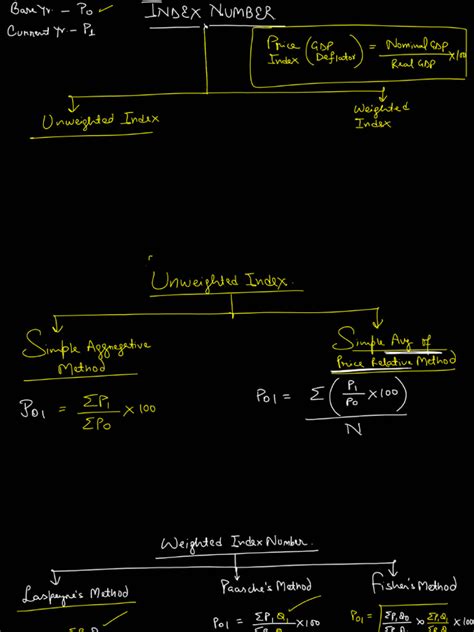 Base Yr. - P0 ✓
INDEX NUMBER
Current Yr - P1
Price Index (GDP Deflator) = Nominal GDP / Real GDP × 100
Unweighted Index
Weighted Index
Unweighted Index.
Simple Aggregative Method
P01 = ΣP1 / ΣP0 × 100
Simple Avg of Price Relative Method
P01 = Σ (P1 / P0 × 100) / N
Weighted Index Number.
Laspeyre's Method
Paasche's Method
Fisher's Method
P01 = ΣP1Q1 ✓ × 100
P01 = √ ΣP1Q0 × ΣP1Q1 × 100